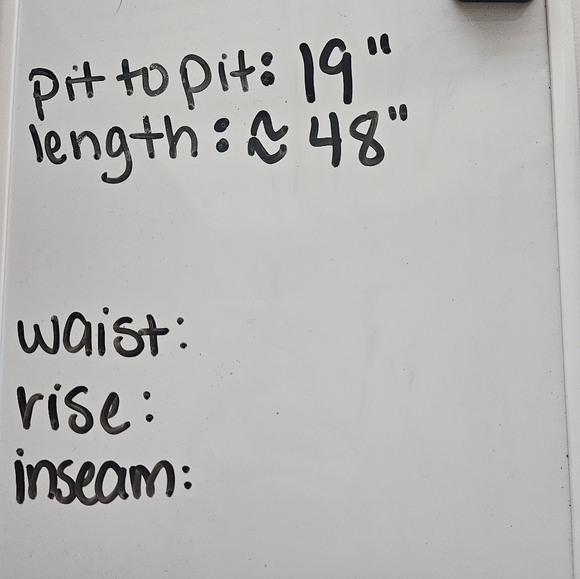 pit to pit: 19"
length: ≈ 48"
waist:
rise:
inseam: